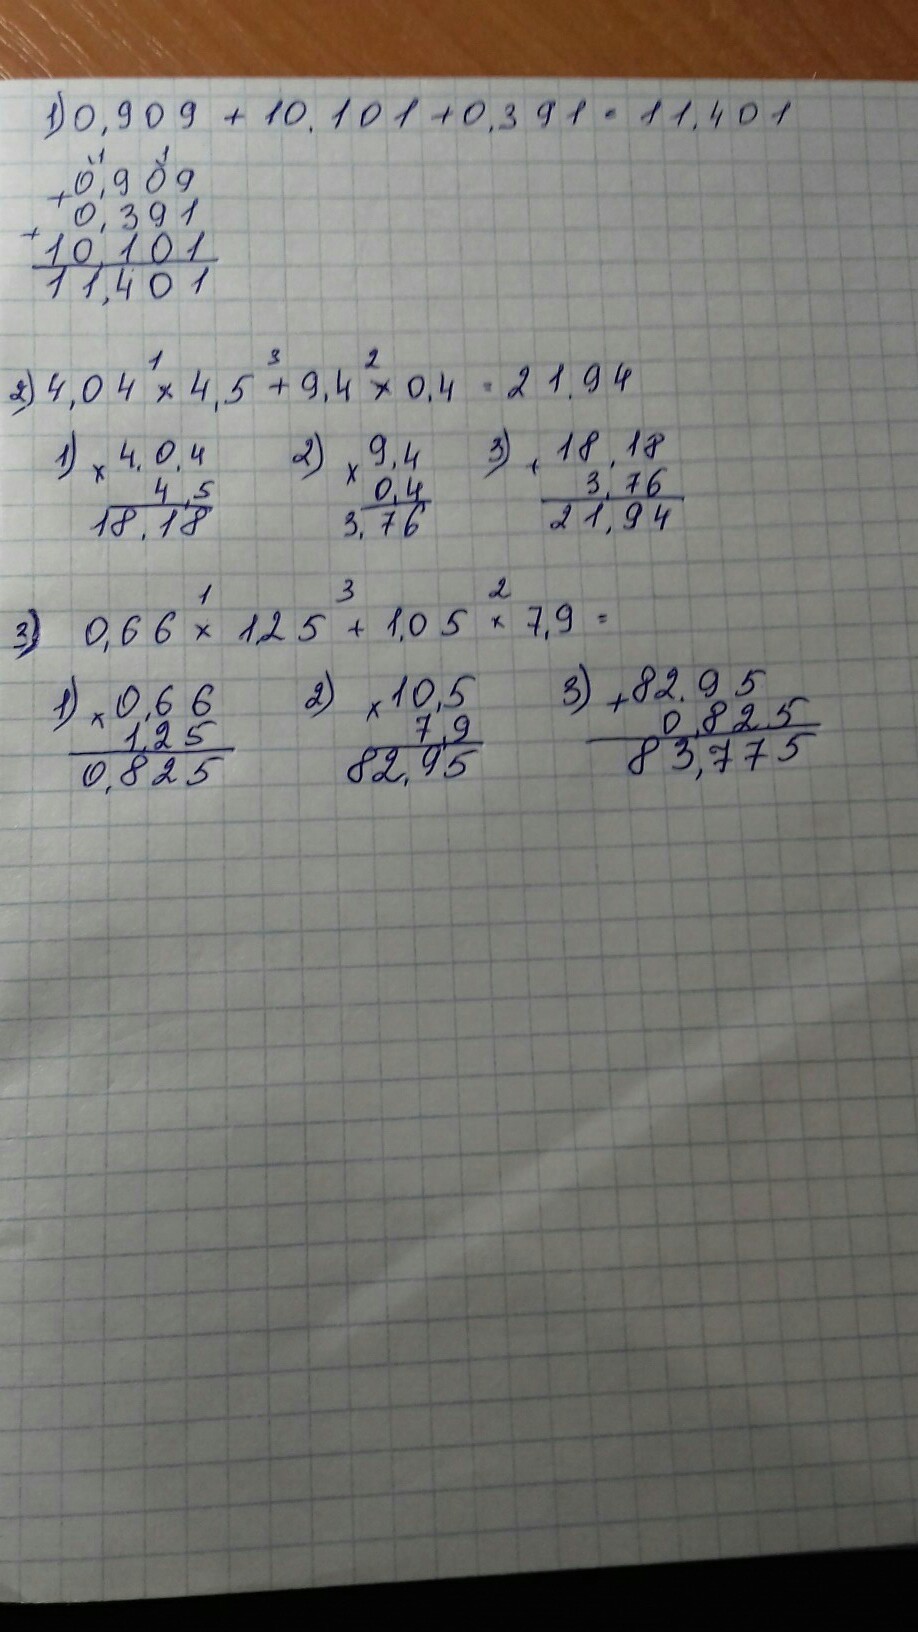 1) 0,909 + 10,101 + 0,391 = 11,401
1 1
+ 0,909
+ 0,391
10,101
11,401
1 3 2
2) 4,04 × 4,5 + 9,4 × 0,4 = 21,94
1) × 4,0,4 2) × 9,4 3) + 18,18
4,5 0,4 3,76
18,18 3,76 21,94
1 3 2
3) 0,66 × 1,25 + 1,05 × 7,9 =
1) × 0,66 2) × 10,5 3) + 82,95
1,25 7,9 0,825
0,825 82,95 83,775